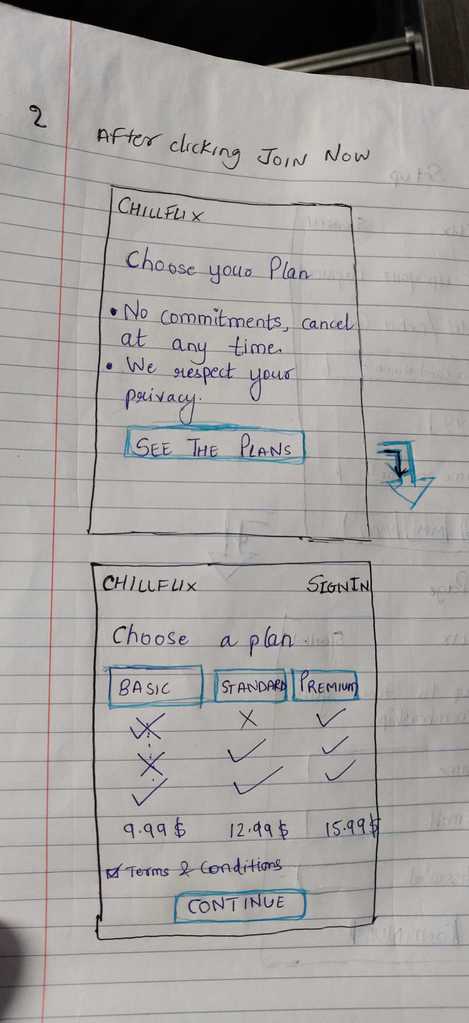 2
After clicking JOIN NOW
CHILLFLIX
Choose your Plan
• No commitments, cancel
at any time.
• We respect your
privacy.
SEE THE PLANS
CHILLFLIX SIGNIN
Choose a plan.
BASIC STANDARD PREMIUM
9.99 $ 12.99 $ 15.99 $
☑ Terms & Conditions
CONTINUE